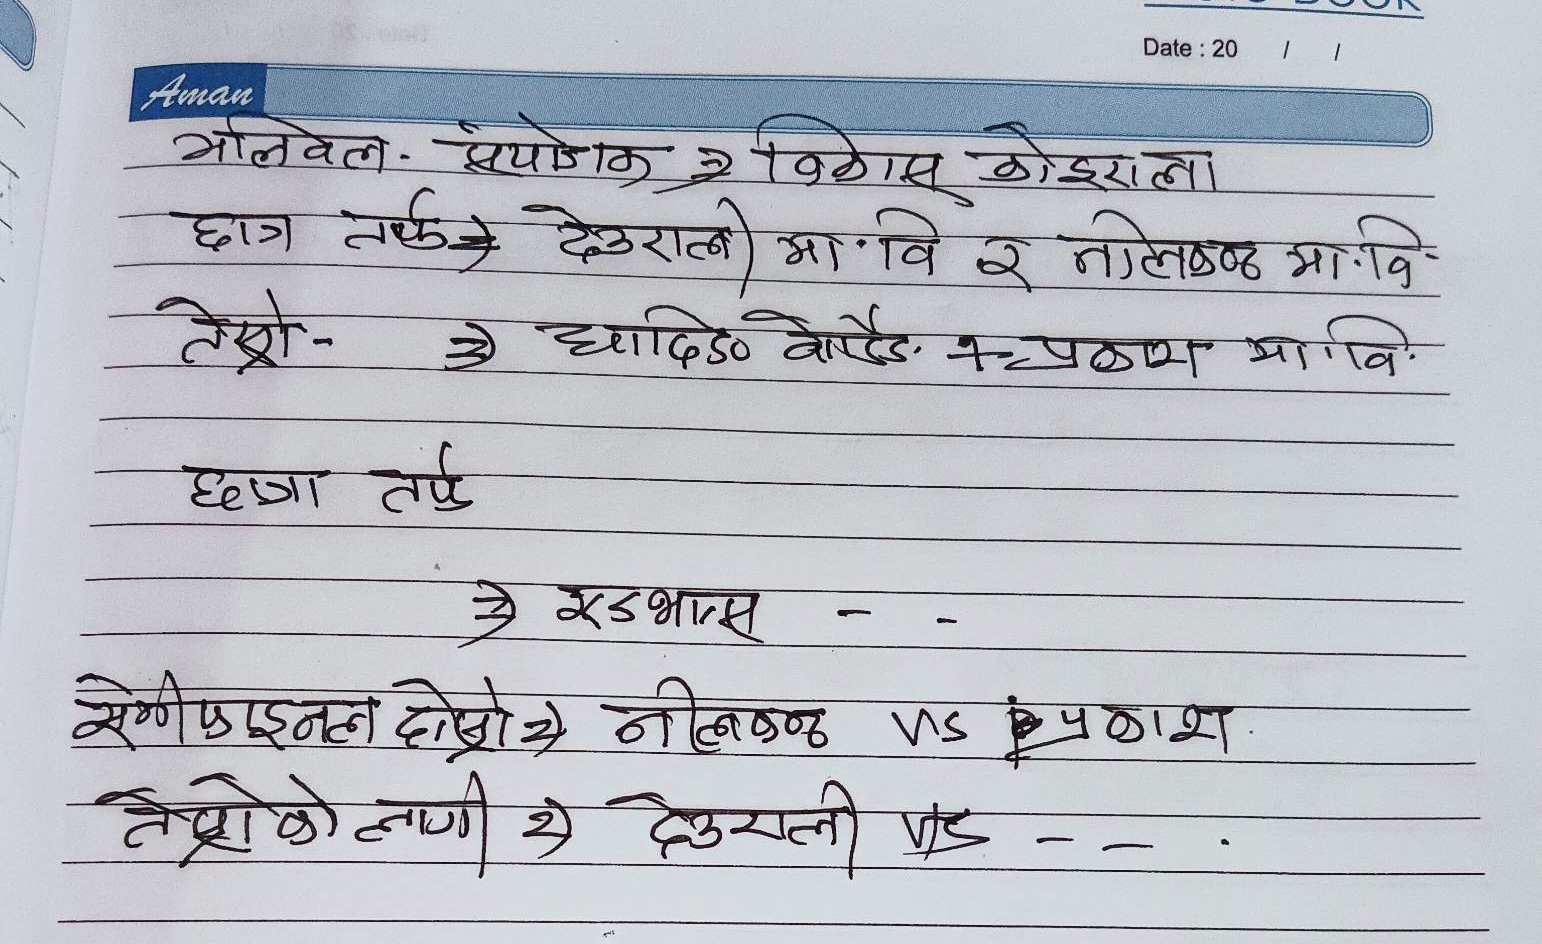 Date : 20 / /
Aman
भलिवल - संयोजक → विकास कोइराला
छात्र तर्फ → देउराली मा.वि र नीलकण्ठ मा.वि.
तेस्रो - → धादिङ बोर्डिङ + प्रकाश मा.वि.
छात्रा तर्फ
→ एडभान्स - -
सेमीफाइनल दोस्रो → नीलकण्ठ VS प्रकाश
तेस्रोको लागी → देउराली VS - - .